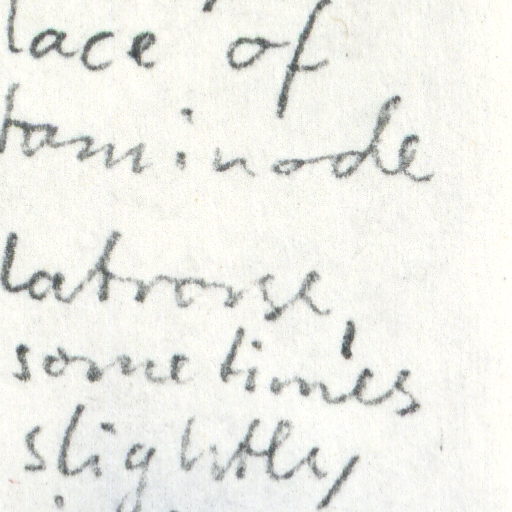 lace of
taminode
latrorse,
sometimes
slightly